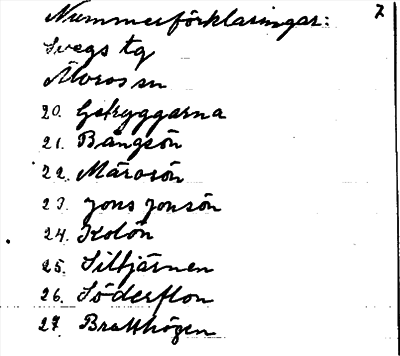 Nummerförklaringar: 7
Svegs tg
Älvros sn
20. Getryggarna
21. Bångsön
22. Mårosön
23. Jons Jonsön
24. Kolön
25. Siltjärnen
26. Söderflon
27 Bratthögen